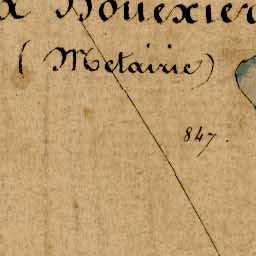 a Bouëxier
( Metairie)
847.